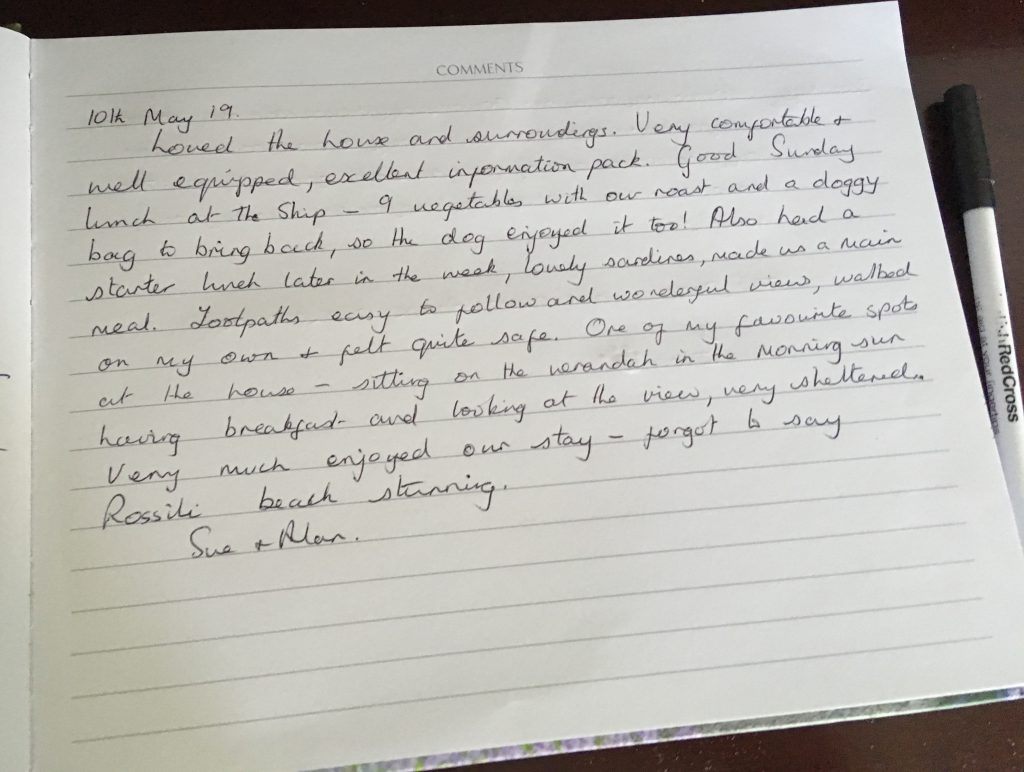 COMMENTS
10th May 19.
Loved the house and surroundings. Very comfortable +
well equipped, excellent information pack. Good Sunday
lunch at The Ship – 9 vegetables with our roast and a doggy
bag to bring back, so the dog enjoyed it too! Also had a
starter lunch later in the week, lovely sardines, made us a main
meal. Footpaths easy to follow and wonderful views, walked
on my own + felt quite safe. One of my favourite spots
at the house – sitting on the verandah in the morning sun
having breakfast and looking at the view, very sheltered.
Very much enjoyed our stay – forgot to say
Rossili beach stunning.
Sue + Alan.
RedCross